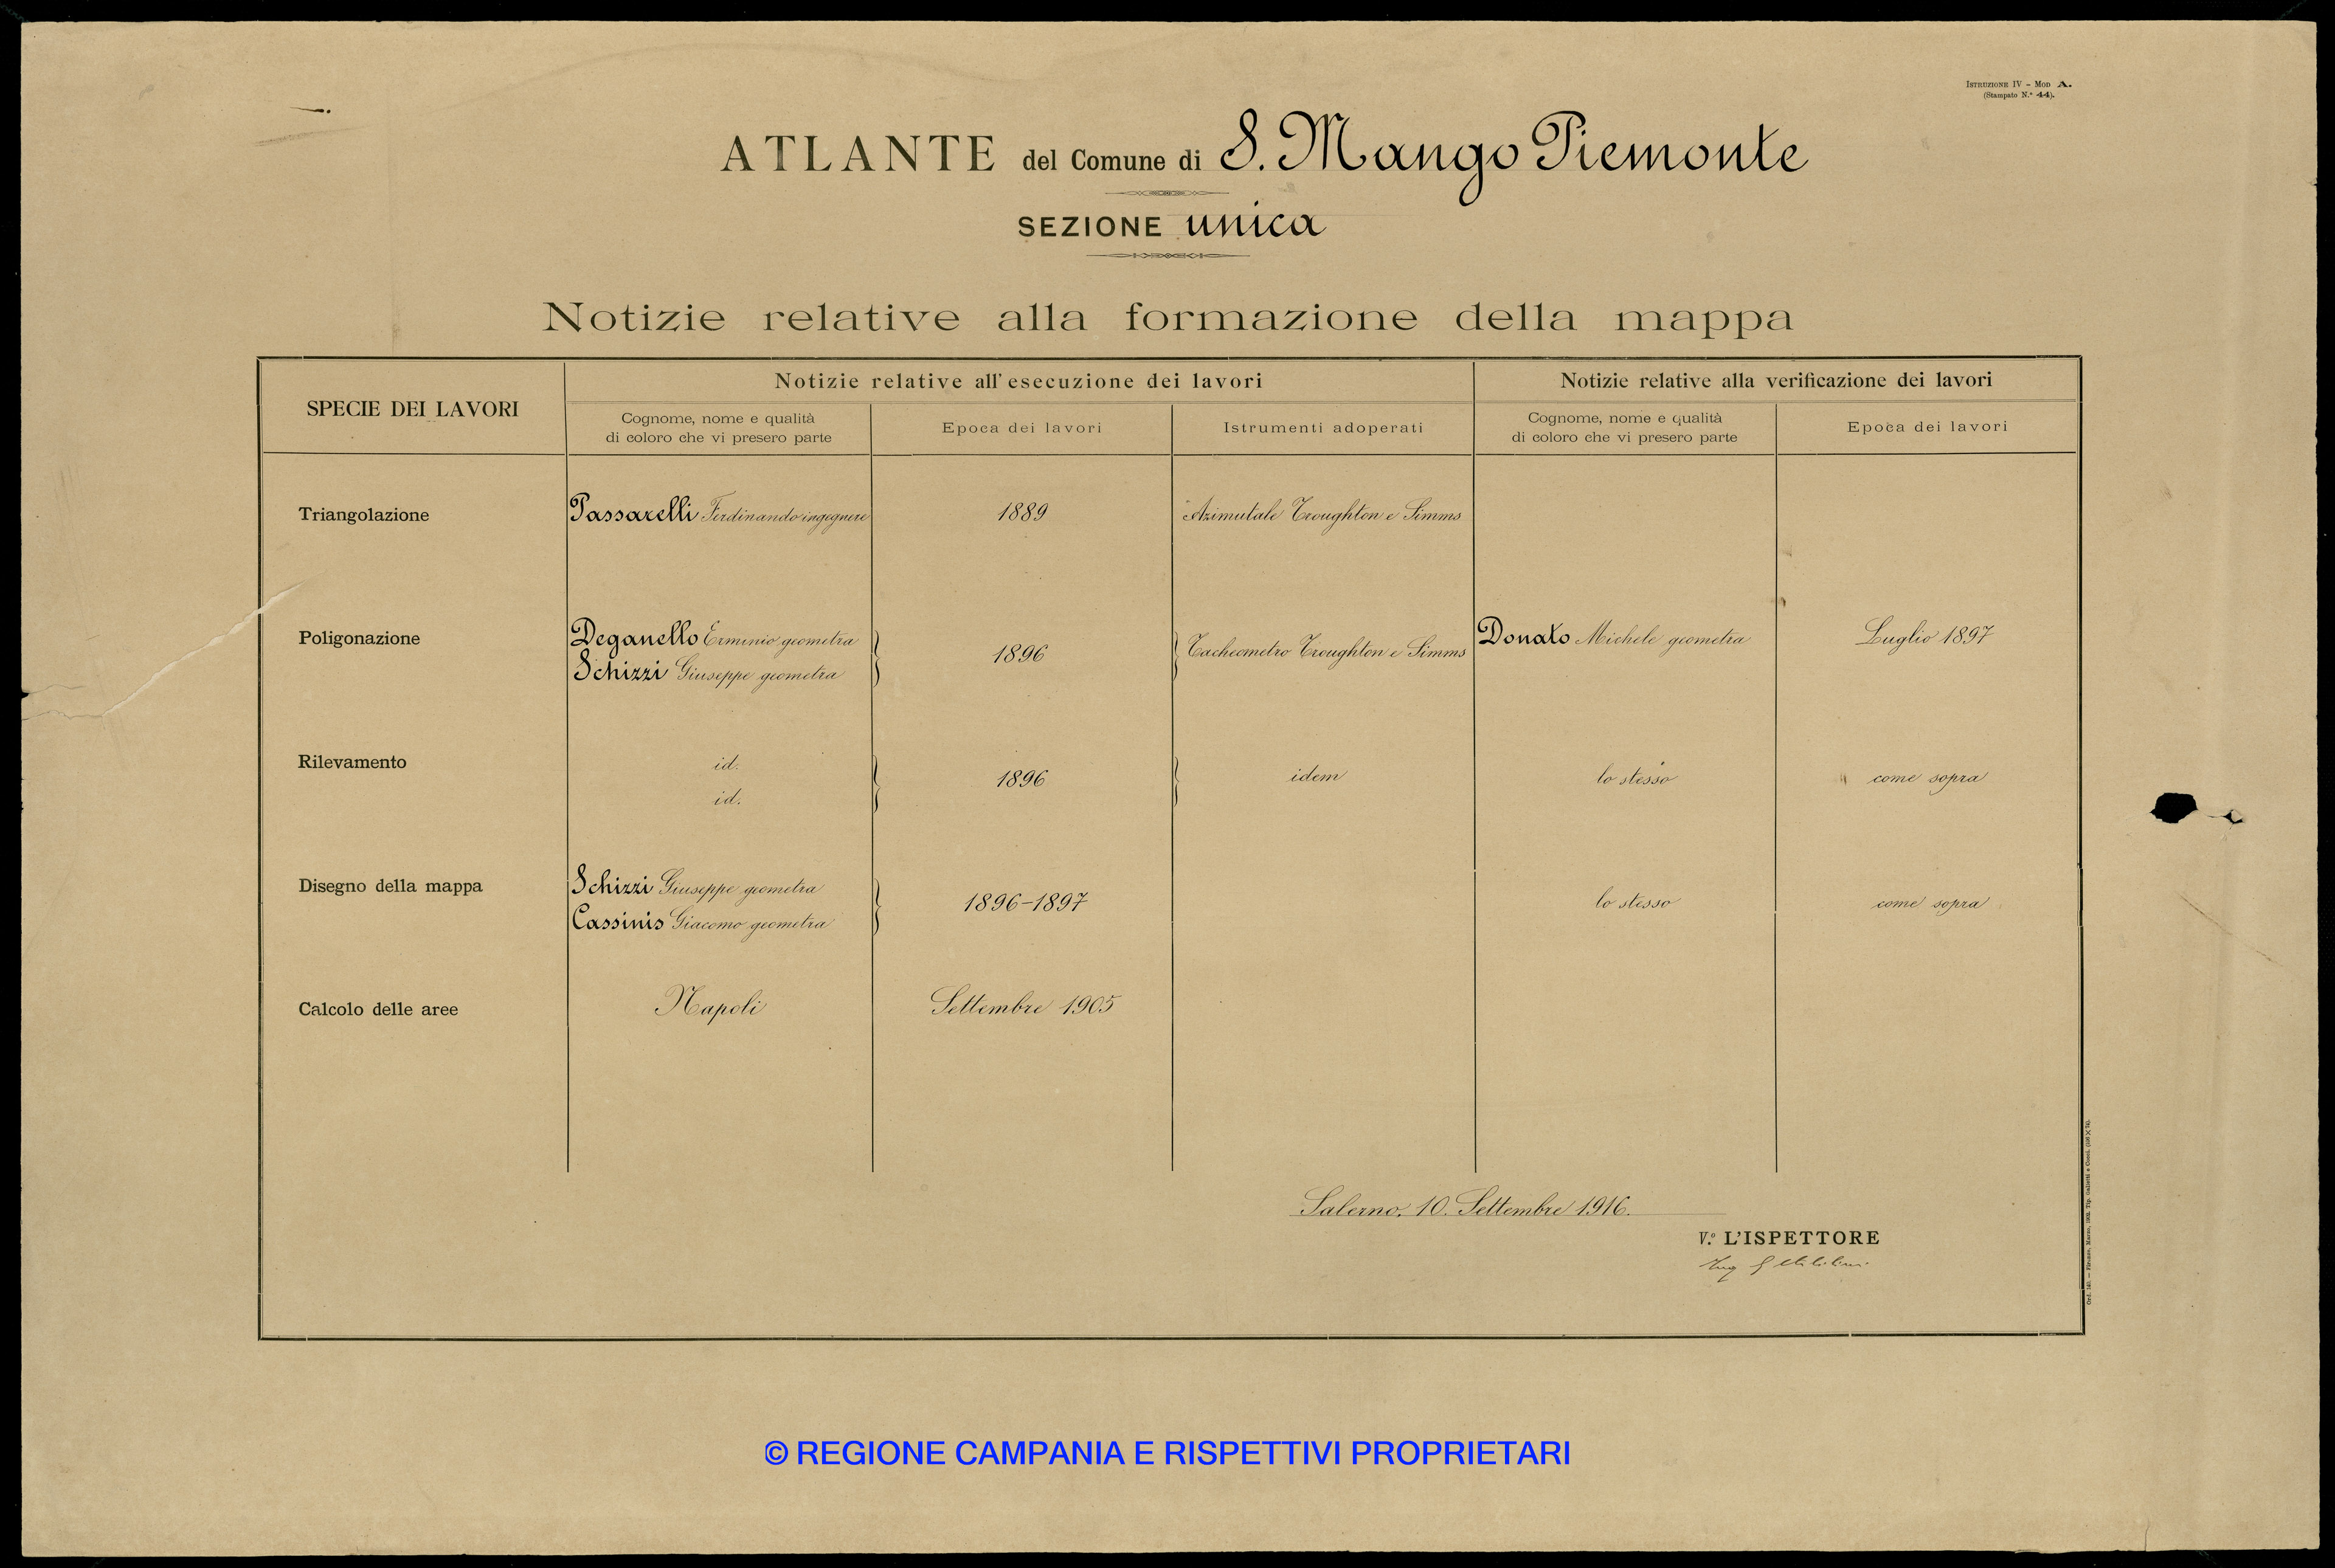 ISTRUZIONE IV - MOD A.
(Stampato N.° 44).
ATLANTE del Comune di S. Mango Piemonte
SEZIONE unica
Notizie relative alla formazione della mappa
SPECIE DEI LAVORI
Notizie relative all'esecuzione dei lavori
Notizie relative alla verificazione dei lavori
Cognome, nome e qualità
di coloro che vi presero parte
Epoca dei lavori
Istrumenti adoperati
Cognome, nome e qualità
di coloro che vi presero parte
Epoca dei lavori
Triangolazione
Passarelli Ferdinando ingegnere
1889
Azimutale Troughton e Simms
Poligonazione
Deganello Erminio geometra
Schizzi Giuseppe geometra
1896
Tacheometro Troughton e Simms
Donato Michele geometra
Luglio 1897
Rilevamento
id.
id.
1896
idem
lo stesso
come sopra
Disegno della mappa
Schizzi Giuseppe geometra
Cassinis Giacomo geometra
1896-1897
lo stesso
come sopra
Calcolo delle aree
Napoli
Settembre 1905
Salerno, 10. Settembre 1916.
V.° L'ISPETTORE
Ing
© REGIONE CAMPANIA E RISPETTIVI PROPRIETARI